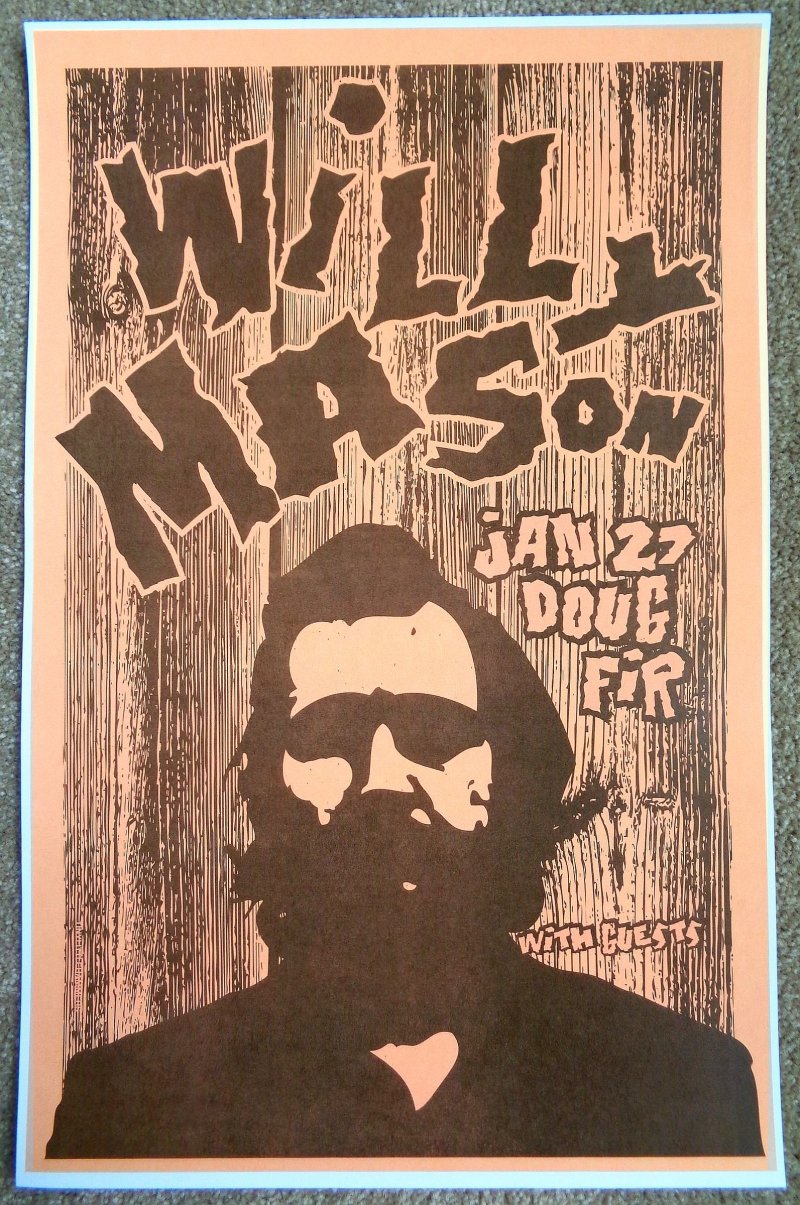 WiLLy
MASON
jAN 27
DOUG
FiR
WiTH GUESTS